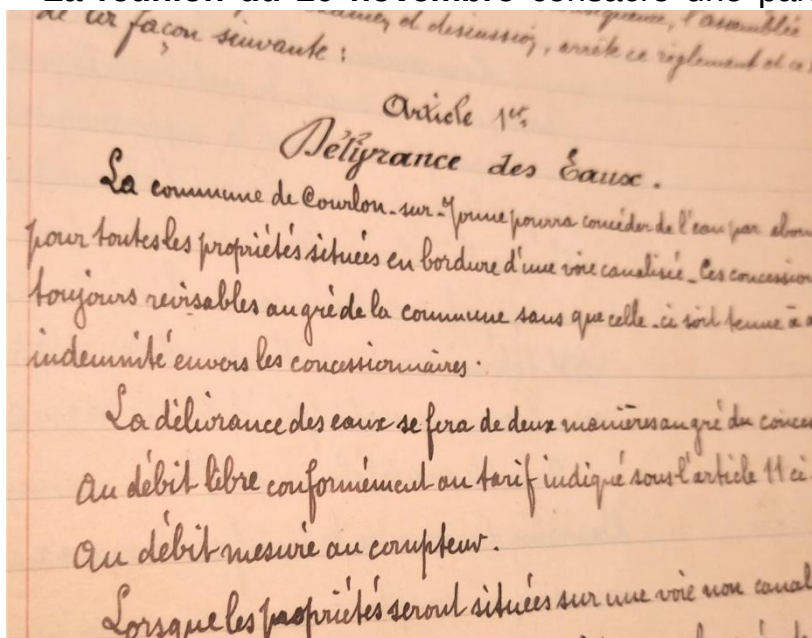 La réunion du 10 novembre consacre une par
examen et discussion, l'assemblée
de la façon suivante : arrête ce règlement et ce
Article 1er.
Délivrance des Eaux.
La commune de Courlon-sur-Yonne pourra concéder de l'eau par abon
pour toutes les propriétés situées en bordure d'une voie canalisée. Ces concession
toujours revisables au gré de la commune sans que celle-ci soit tenue à a
indemnité envers les concessionnaires.
La délivrance des eaux se fera de deux manières au gré du conces
Au débit libre conformément au tarif indiqué sous l'article 11 ci.
Au débit mesuré au compteur.
Lorsque les propriétés seront situées sur une voie non canal